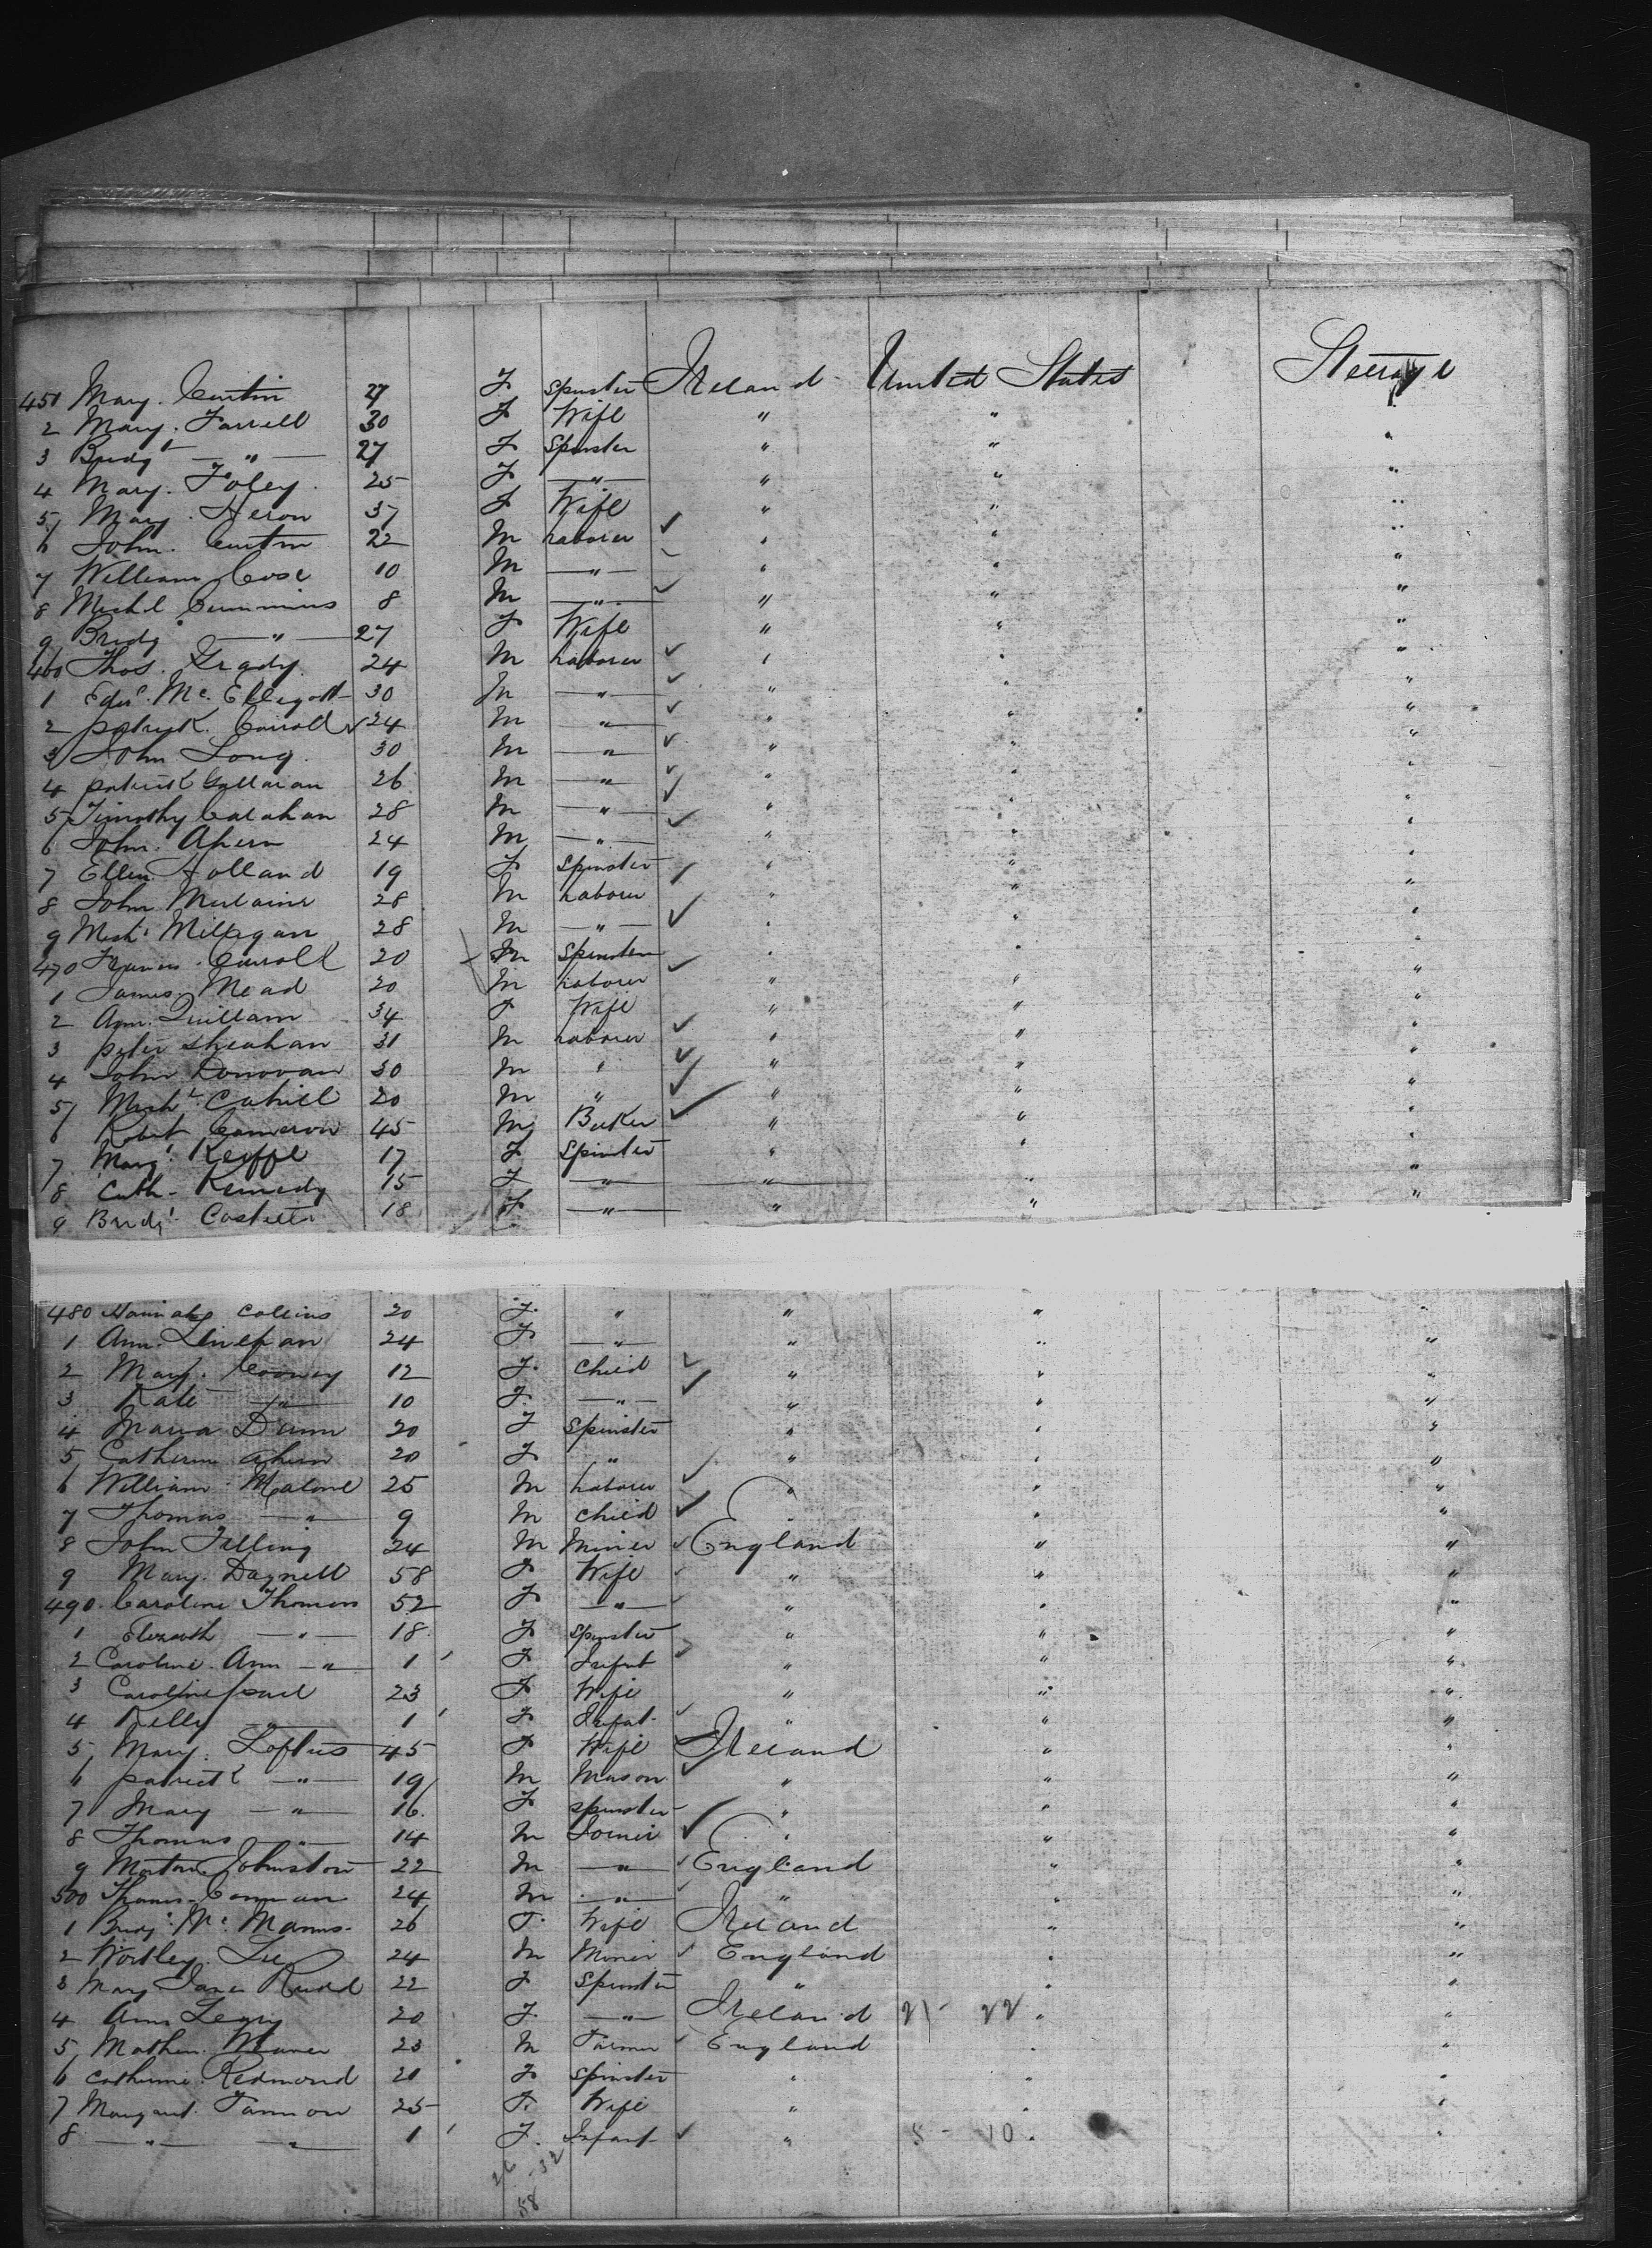 451 Mary. Curtin 27 F Spinster Ireland United States Steerage
2 Mary. Farrell 30 F Wife " " "
3 Bridgt — " — 27 F Spinster " " "
4 Mary. Foley. 25 F — " — " " "
5 Mary. Heron 37 F Wife " " "
6 John. Curtin 22 M Laborer " " "
7 William 10 M — " — " " "
8 Michl Cummins 8 M — " — " " "
9 Bridgt — " — 27 F Wife " " "
460 Thos. Grady. 24 M Laborer " " "
1 Edwd. Mc. Elligott 30 M — " — " " "
2 Patrick. Carroll 24 M — " — " " "
3 John Long. 30 M — " — " " "
4 Patrick 26 M — " — " " "
5 Timothy Calahan 28 M — " — " " "
6 John. Ahern 24 M — " — " " "
7 Ellen Holland 19 F Spinster " " "
8 John 28 M Laborer " " "
9 Michl Milligan 28 M — " — " " "
470 Francis. Carroll 20 M Spinster " " "
1 James Mead 20 M Laborer " " "
2 Ann. Quillam 34 F Wife " " "
3 Peter Sheahan 31 M Laborer " " "
4 John Donovan 30 M " " " "
5 Michl. Cahill 20 M " " " "
6 Robert Cameron 45 M Baker " " "
7 Margt. Keiffe 17 F Spinster " " "
8 Cath. Kennedy 15 F — " — " " "
9 Bridgt. 18 F — " — " " "
480 Hannah Collins 20 F. " " " "
1 Ann. Linehan 24 F — " — " " "
2 Mary. Cooney 12 F. Child " " "
3 Kate — " — 10 F. — " — " " "
4 Maria Dunn 20 F Spinster " " "
5 Catherine Ahern 20 F " " " "
6 William Malone 25 M Laborer " " "
7 Thomas — " — 9 M Child " " "
8 John Tilling 24 M Miner England " "
9 Mary. Dagnell 58 F Wife " " "
490. Caroline Thomas 52 F — " — " " "
1 Elizabeth — " — 18 F Spinster " " "
2 Caroline. Ann — " — 1 F Infant " " "
3 Caroline 23 F Wife " " "
4 Kelly 1 F Infat. " " "
5 Mary. Loftus 45 F Wife Ireland " "
6 Patrick — " — 19 M Mason " " "
7 Mary — " — 16 F Spinster " " "
8 Thomas — " — 14 M Joiner " " "
9 Johnston 22 M — " — England " "
500 Thomas 24 M — " — " " "
1 Bridgt. Mc. Manus. 26 F. Wife Ireland " "
2 Wortley. Lee 24 M Miner England " "
3 Mary Jane Rudd 22 F Spinster " " "
4 Ann Leary 20 F. — " — Ireland 21 - 22 " "
5 23 M Farmer England " "
6 Catherine. Redmond 21 F Spinster " " "
7 Margaret. Fannon 25 F. Wife " " "
8 — " — " 1 F. Infant " 5 - 10. "
26 - 32
58